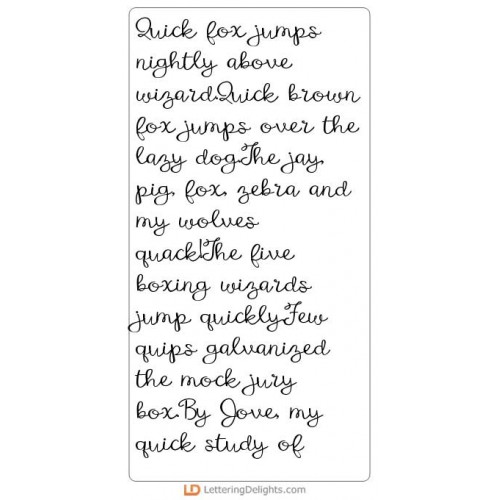 Quick fox jumps
nightly above
wizard.Quick brown
fox jumps over the
lazy dog.The jay,
pig, fox, zebra and
my wolves
quack!The five
boxing wizards
jump quickly.Few
quips galvanized
the mock jury
box.By Jove, my
quick study of
LD LetteringDelights.com